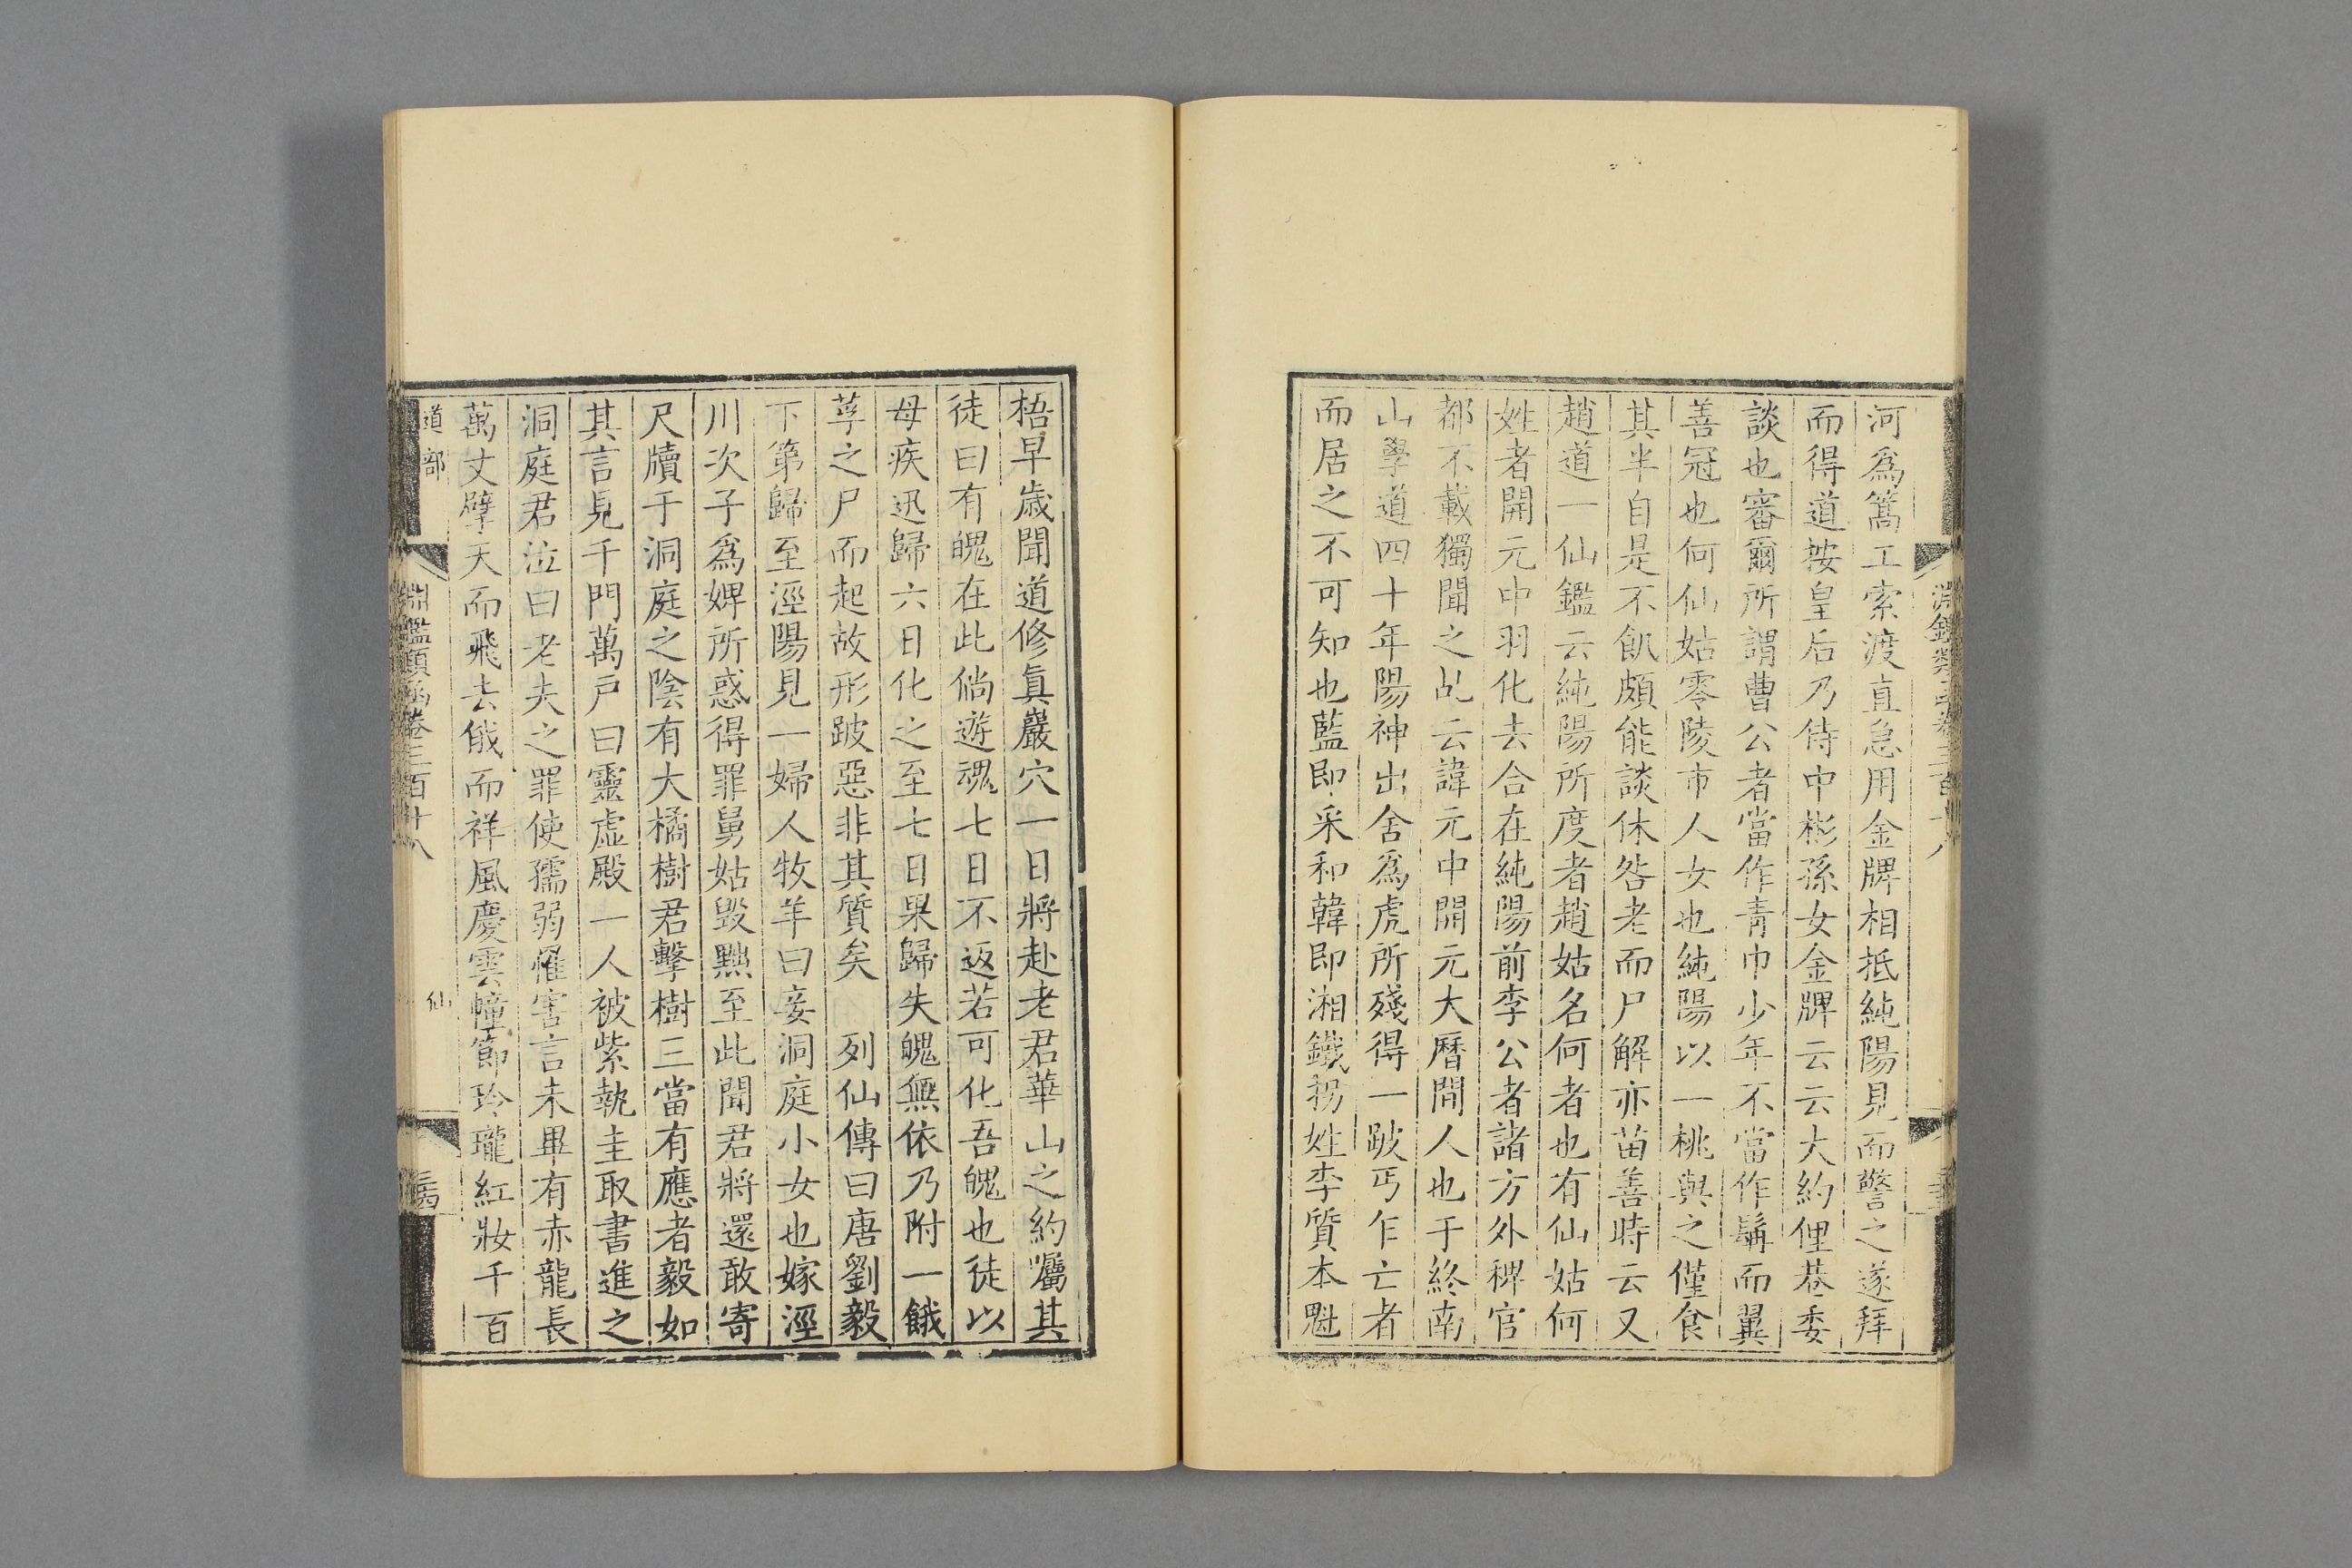 河爲篙工索渡直急用金牌相抵純陽見而警之遂拜
而得道按皇后乃侍中彬孫女金牌云云大約俚巷委
談也審爾所謂曹公者當作青巾少年不當作髯而翼
善冠也何仙姑零陵市人女也純陽以一桃與之僅食
其半自是不飢頗能談休咎老而尸解亦苗善時云又
趙道一仙鑑云純陽所度者趙姑名何者也有仙姑何
姓者開元中羽化去合在純陽前李公者諸方外稗官
都不載獨聞之乩云諱元中開元大曆間人也于終南
山學道四十年陽神出舍爲虎所殘得一跛丐乍亡者
而居之不可知也藍即采和韓即湘鐵拐姓李質本魁
梧早歲聞道修眞巖穴一日將赴老君華山之約囑其
徒曰有魄在此倘遊魂七日不返若可化吾魄也徒以
母疾迅歸六日化之至七日果歸失魄無依乃附一餓
莩之尸而起故形跛惡非其質矣 列仙傳曰唐劉毅
下第歸至涇陽見一婦人牧羊曰妾洞庭小女也嫁涇
川次子爲婢所惑得罪舅姑毀黜至此聞君將還敢寄
尺牘于洞庭之陰有大橘樹君擊樹三當有應者毅如
其言見千門萬戸曰靈虛殿一人被紫執圭取書進之
洞庭君泣曰老夫之罪使孺弱罹害言未畢有赤龍長
萬丈擘天而飛去俄而祥風慶雲幢節玲瓏紅妝千百
道部 淵鑑類函卷三百十八 仙